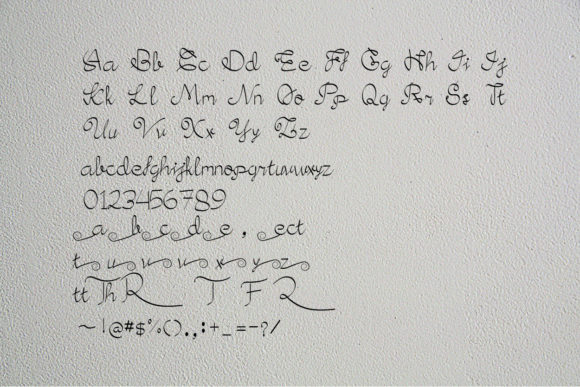 Aa Bb Cc Dd Ee Ff Gg Hh Ii Jj
Kk Ll Mm Nn Oo Pp Qq Rr Ss Tt
Uu Vv Xx Yy Zz
0123456789
a b c d e , ect
t u v w x y z
tt Th R T F R
~ ! @ # $ % ( ) . , : + _ = - ? /